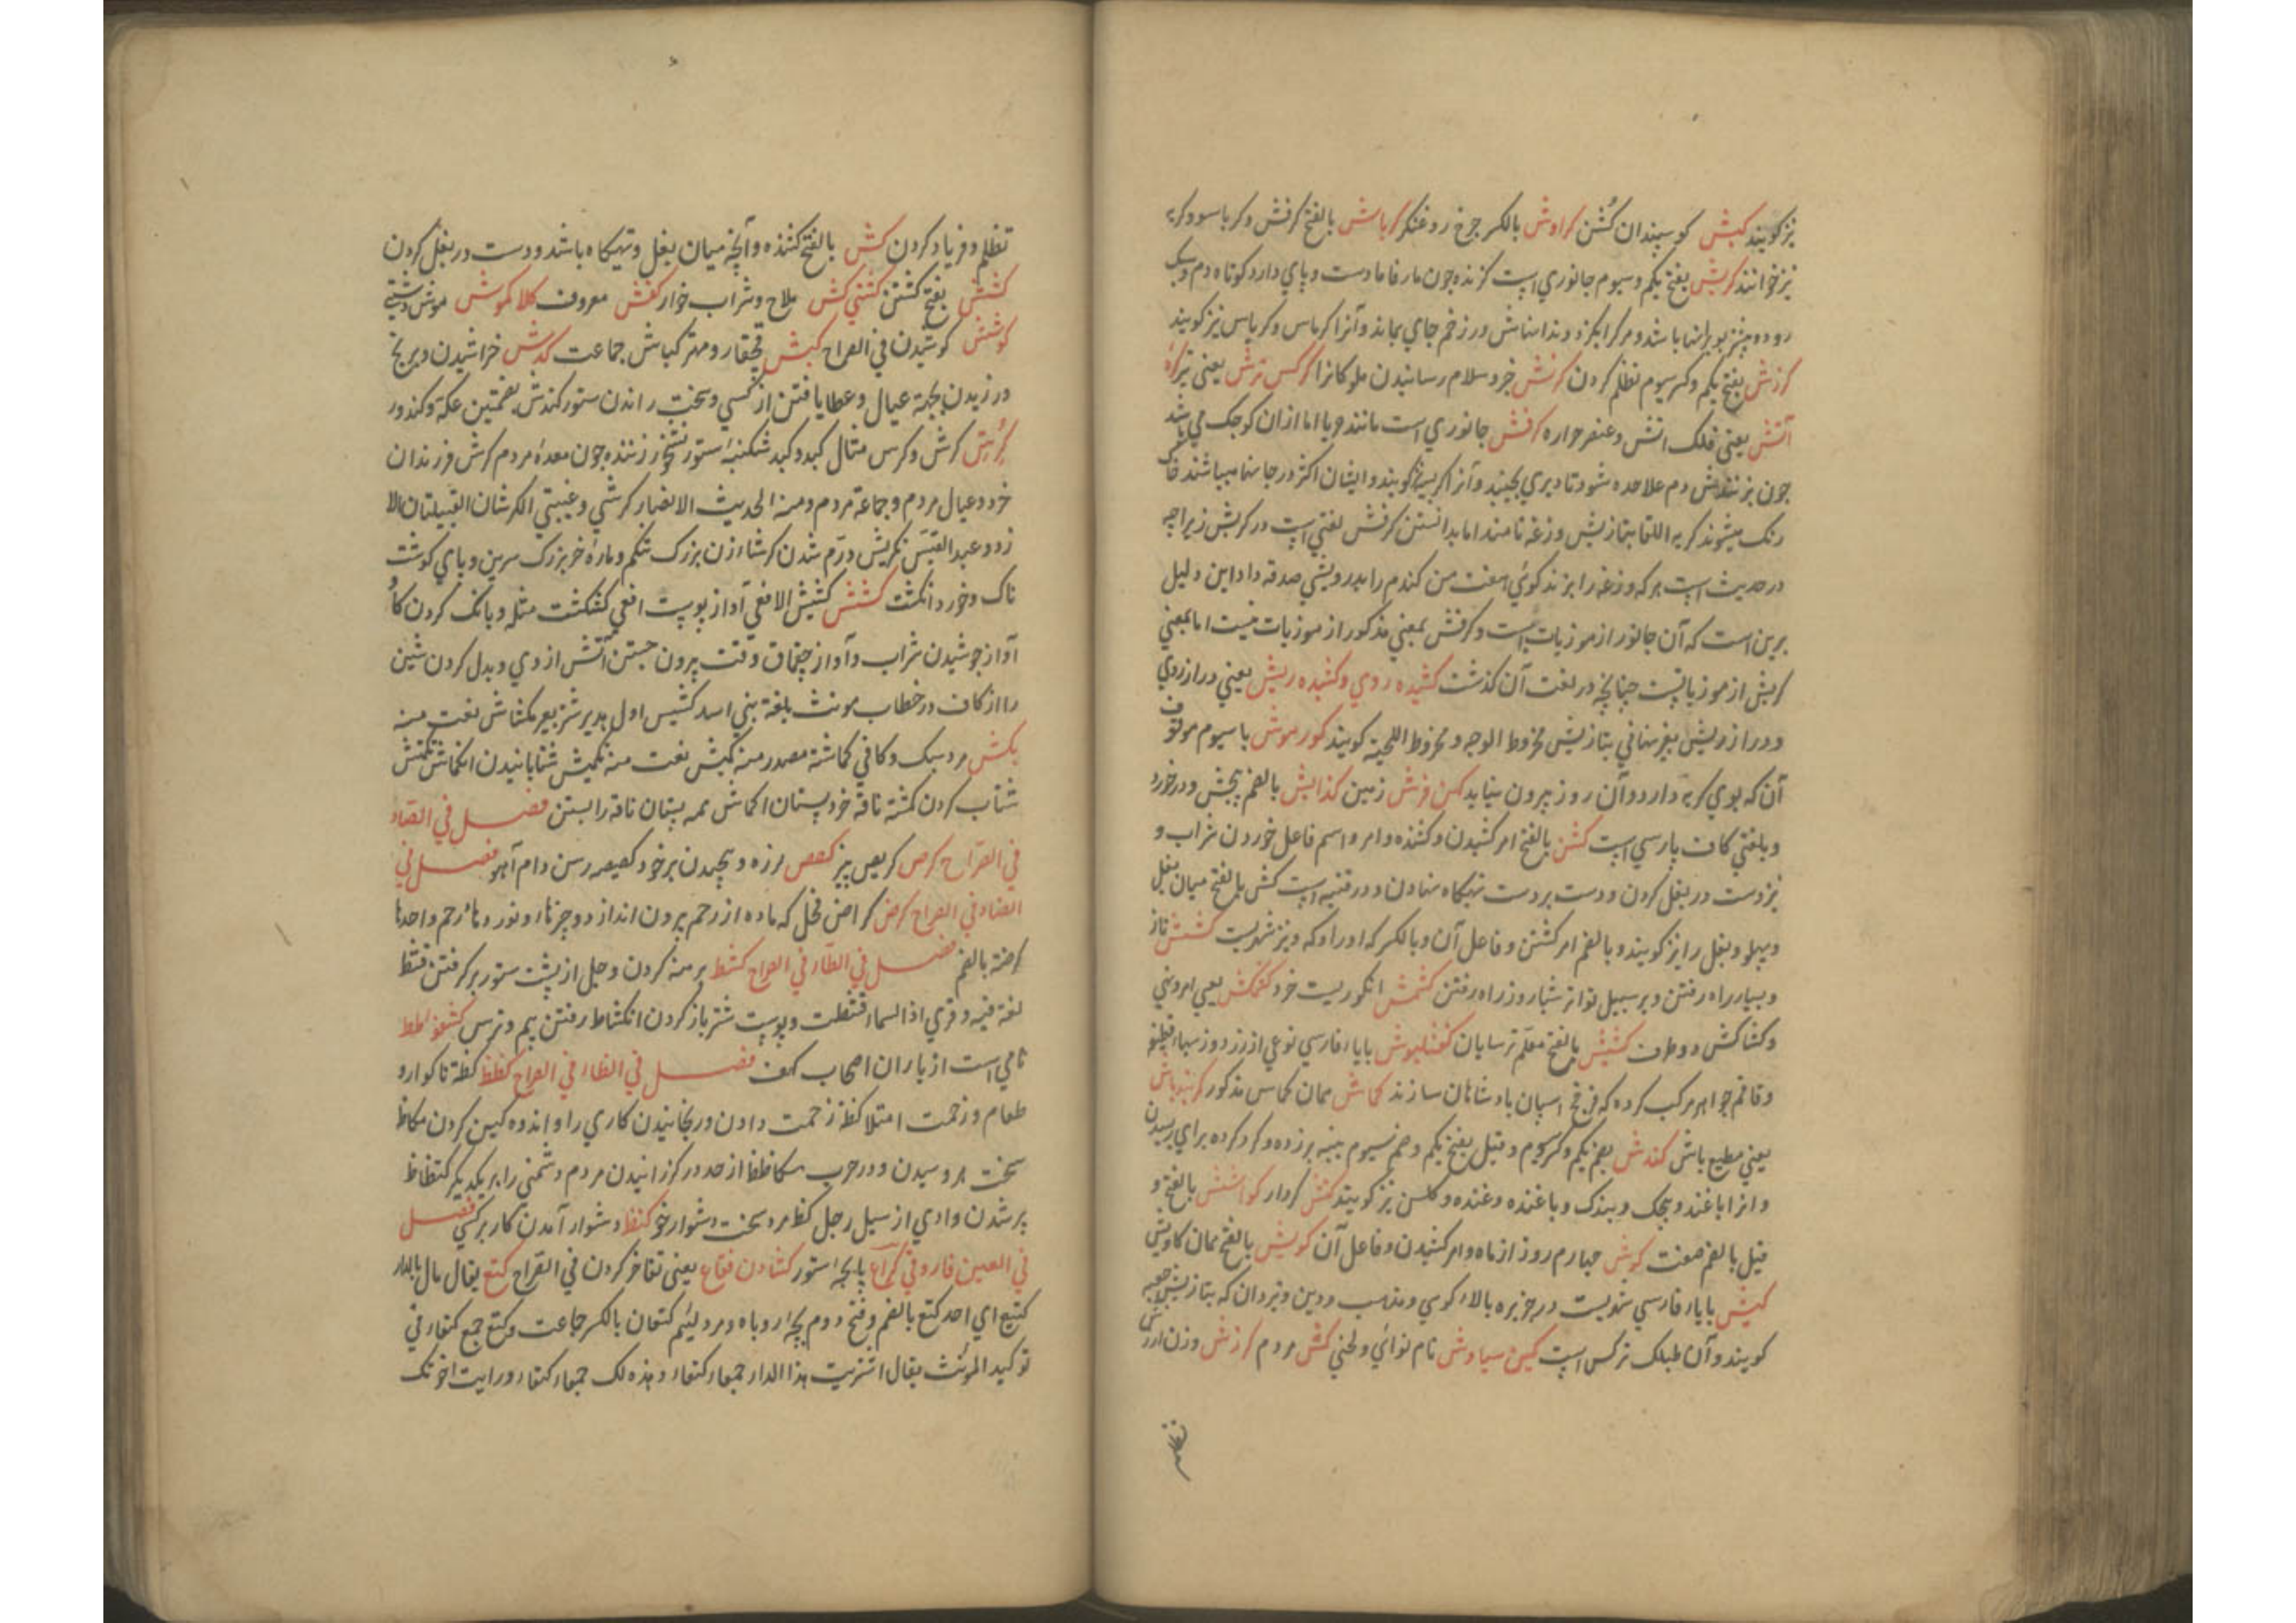 نیز کویند کبش کوسپندان کُشن کراوش بالکسر جرخ روغنکر کرباش بالفتح کرفش و کرباسو و کربه
نیز خوانند کربش بفتح یکم و سیوم جانوری است کزنده جون مار فاما دست و پای دارد کوتاه دم و سبک
رود و بیشتر بویرانها باشد و هر کرا بکزد دندانهاش در زخم جای بماند و آنرا کرباس و کرپاس نیز کویند
کرزش بفتح یکم و کسر سیوم تظلم کردن کرنش خبر و سلام رسانیدن ملوکانرا کرکس ترش یعنی تیر کره
آتش یعنی فلک اتش و عنصر حراره کرفش جانوری است مانند حربا اما ازان کوجک می باشد
جون بزنندش دم علاحده شود تا دیری بجنبد و آنرا کربسه نیز کویند و ایشان اکثر در جاهنا میباشند خاک
رنک میشوند کربه اللقا بتازیش وزغه نامند اما بدانستن کرفش لغتی است در کربش زیراجه
در حدیث است هر که وزغه را بزند کوئی هفت من کندم را بدرویشی صدقه داد این دلیل
برین است که آن جانور از موذیات است و کرفش بمعنی مذکور از موذیات نیست اما بمعنی
کربش از موذیاتست چنانچه در لغت آن کذشت کشیده روی و کشیده ریش یعنی دراز روی
و دراز و ریش بتازیش مخروط الوجه و مخروط اللحیة کویند کور موش با سیوم موقوف
آن که بوی کربه دارد و آن روز بیرون نیاید کن فرش زمین کذایش بالضم بخش و در خورد
و بلغتی کاف پارسی است کش بالفتح امر کشیدن و کشنده و امر و اسم فاعل خوردن شراب و
نیز دست در بغل کردن و دست بر دست تهیکاه نهادن و در قنیه است کش بالفتح میان بغل
و پهلو و بغل را نیز کویند و بالضم امر کشتن و فاعل آن و بالکسر که او را و که و نیز شهریست کشش ناز
و بسیار راه رفتن و بر سبیل تواتر شبا روز راه رفتن کشمش انکوریست خرد کشمکش یعنی امر و نهی
و کشاکش دو طرف کشیش بالفتح معلّم ترسایان
و قاقم جواهر مرکب کرده که فرنج اسپان بادشاهان سازند کماش همان کماس مذکور
یعنی مطیع باش کندش بضم یکم و کسر سیوم و قیل بفتح یکم و ضم سیوم پنبه بر زده و کرد کرده برای ریسیدن
و انرا باغنده و بجک و بندک و باغنده و غنده و کلسن نیز کویند کنش کردار کواشش بالفتح و
قیل بالضم صفت کوش جهارم روز از ماه و امر کشیدن و فاعل آن کویش بالفتح همان کاویش
کیش بایاء فارسی شهریست در جزیره بالاء کوسی و مذهب و دین و تیردان که بتازیش جعبه
کویند و آن طبلک ترکس است کین سیاوش نام نوائی و لحنی کش مردم کرزش وزن ارزش
تظلم و فریاد کردن کش بالفتح کشنده و آنچه میان بغل و تهیکاه باشد و دست در بغل کردن
کشش بفتح کشتن کشنی کش ملاح و شراب خوار کفش معروف کلاکموش موش دشتی
کوشش کوشیدن فی الصراح کبش قجقار و مهتر کباش جماعت کدش خراشیدن و برنج
ورزیدن بجهة عیال و عطا یافتن از کسی و سخت راندن ستور کندش بضمتین عکه و کندور
کرش کرش و کرس مثال کبد و کبد شکنبه ستور نشخوار زننده جون معدهٔ مردم کرش فرزندان
خرد و عیال مردم و جماعة مردم و منه الحدیث الانصار کرشی و عیبتی الکرشان القبیلتان الا
زد و عبد القیس تکریش درم شدن کرشا ازن بزرک شکم و مارهٔ خر بزرک سرین و پای کوشت
ناک و خرد انکشت کشش کشیش الافعی آواز پوست افعی کشکشت مثله و بانک کردن کاو
آواز جوشیدن شراب و آواز چقماق وقت بیرون جستن آتش از وی و بدل کردن شین
را از کاف در خطاب مونث بلغة بنی اسد کشیش اول هدیر شتر بعیر مکشاش نعت منه
بکش مرد سبک و کافی کماشة مصدر منه کمیش نعت منه تکمیش شتابانیدن انکماش تکمش
شتاب کردن کمشة ناقهٔ خرد پستان اکماش همه پستان ناقه را بستن فصل فی الصاد
فی الصراح کرص کریص پنیر کعص لرزه و پیچیدن بر خود کصیصه رسن دام آهو فصل فی
الضاد فی الصراح کرض کراض فحل که ماده از رحم بیرون اندازد و چیزها و نورد هاء رحم واحدها
کرضة بالضم فصل فی الطاء فی الصراح کشط برهنه کردن و جل از پشت ستور بر کرفتن قشط
لغة فیه و قری اذا السماء قشطت و پوست شتر باز کردن انکشاط رفتن بیم و ترس کشفوطط
نامی است از یاران اصحاب کهف فصل فی الظاء فی الصراح کظظ کظة ناکوارد
طعام و زحمت امتلا کظة زحمت دادن و رنجانیدن کاری را و اندوه کین کردن مکاظ
سخت بروسیدن و در حرب مکاظظا از حد در کزرانیدن مردم دشمنی را بر یکدیکر کتظاظ
پر شدن وادی از سیل رجل کظ مرد سخت دشوار خو کنظا دشوار آمدن کار بر کسی فصل
فی العین فارو فی کُراع پایچه ستور کشادن فقاع یعنی تفاخر کردن فی الصراح کتع یقال مال بالدار
کتیع ای احد کتع بالضم و فتح دوم بچهٔ روباه و مرد لئیم کتعان بالکسر جماعت و کتع جمع کتعاء فی
توکید المونث یقال اشتریت هذا الدار جمعاء کتعاء و هذه لک جمعاء کتعاء و رایت اخوتک